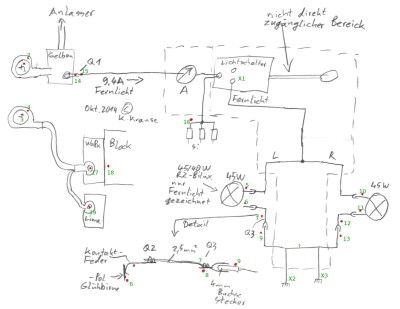 Anlasser
nicht direkt
zugänglicher Bereich
Gelbox
Q1
15
14
9,4A →
Fernlicht
A
Lichtschalter
X1
Fernlicht
Okt. 2019 ©
K. Krause
16
Si
Block
17
18
45/40W
RZ-Bilux
nur
Fernlicht
gezeichnet
45W
L
R
10
45W
11
5
6
7
Q3
9
12
13
Detail
Kontakt-
Feder
Q2
2,5mm²
Q3
7
8
9
-Pol
Glühbirne
6
4mm
Buchse
Stecker
X2
X3